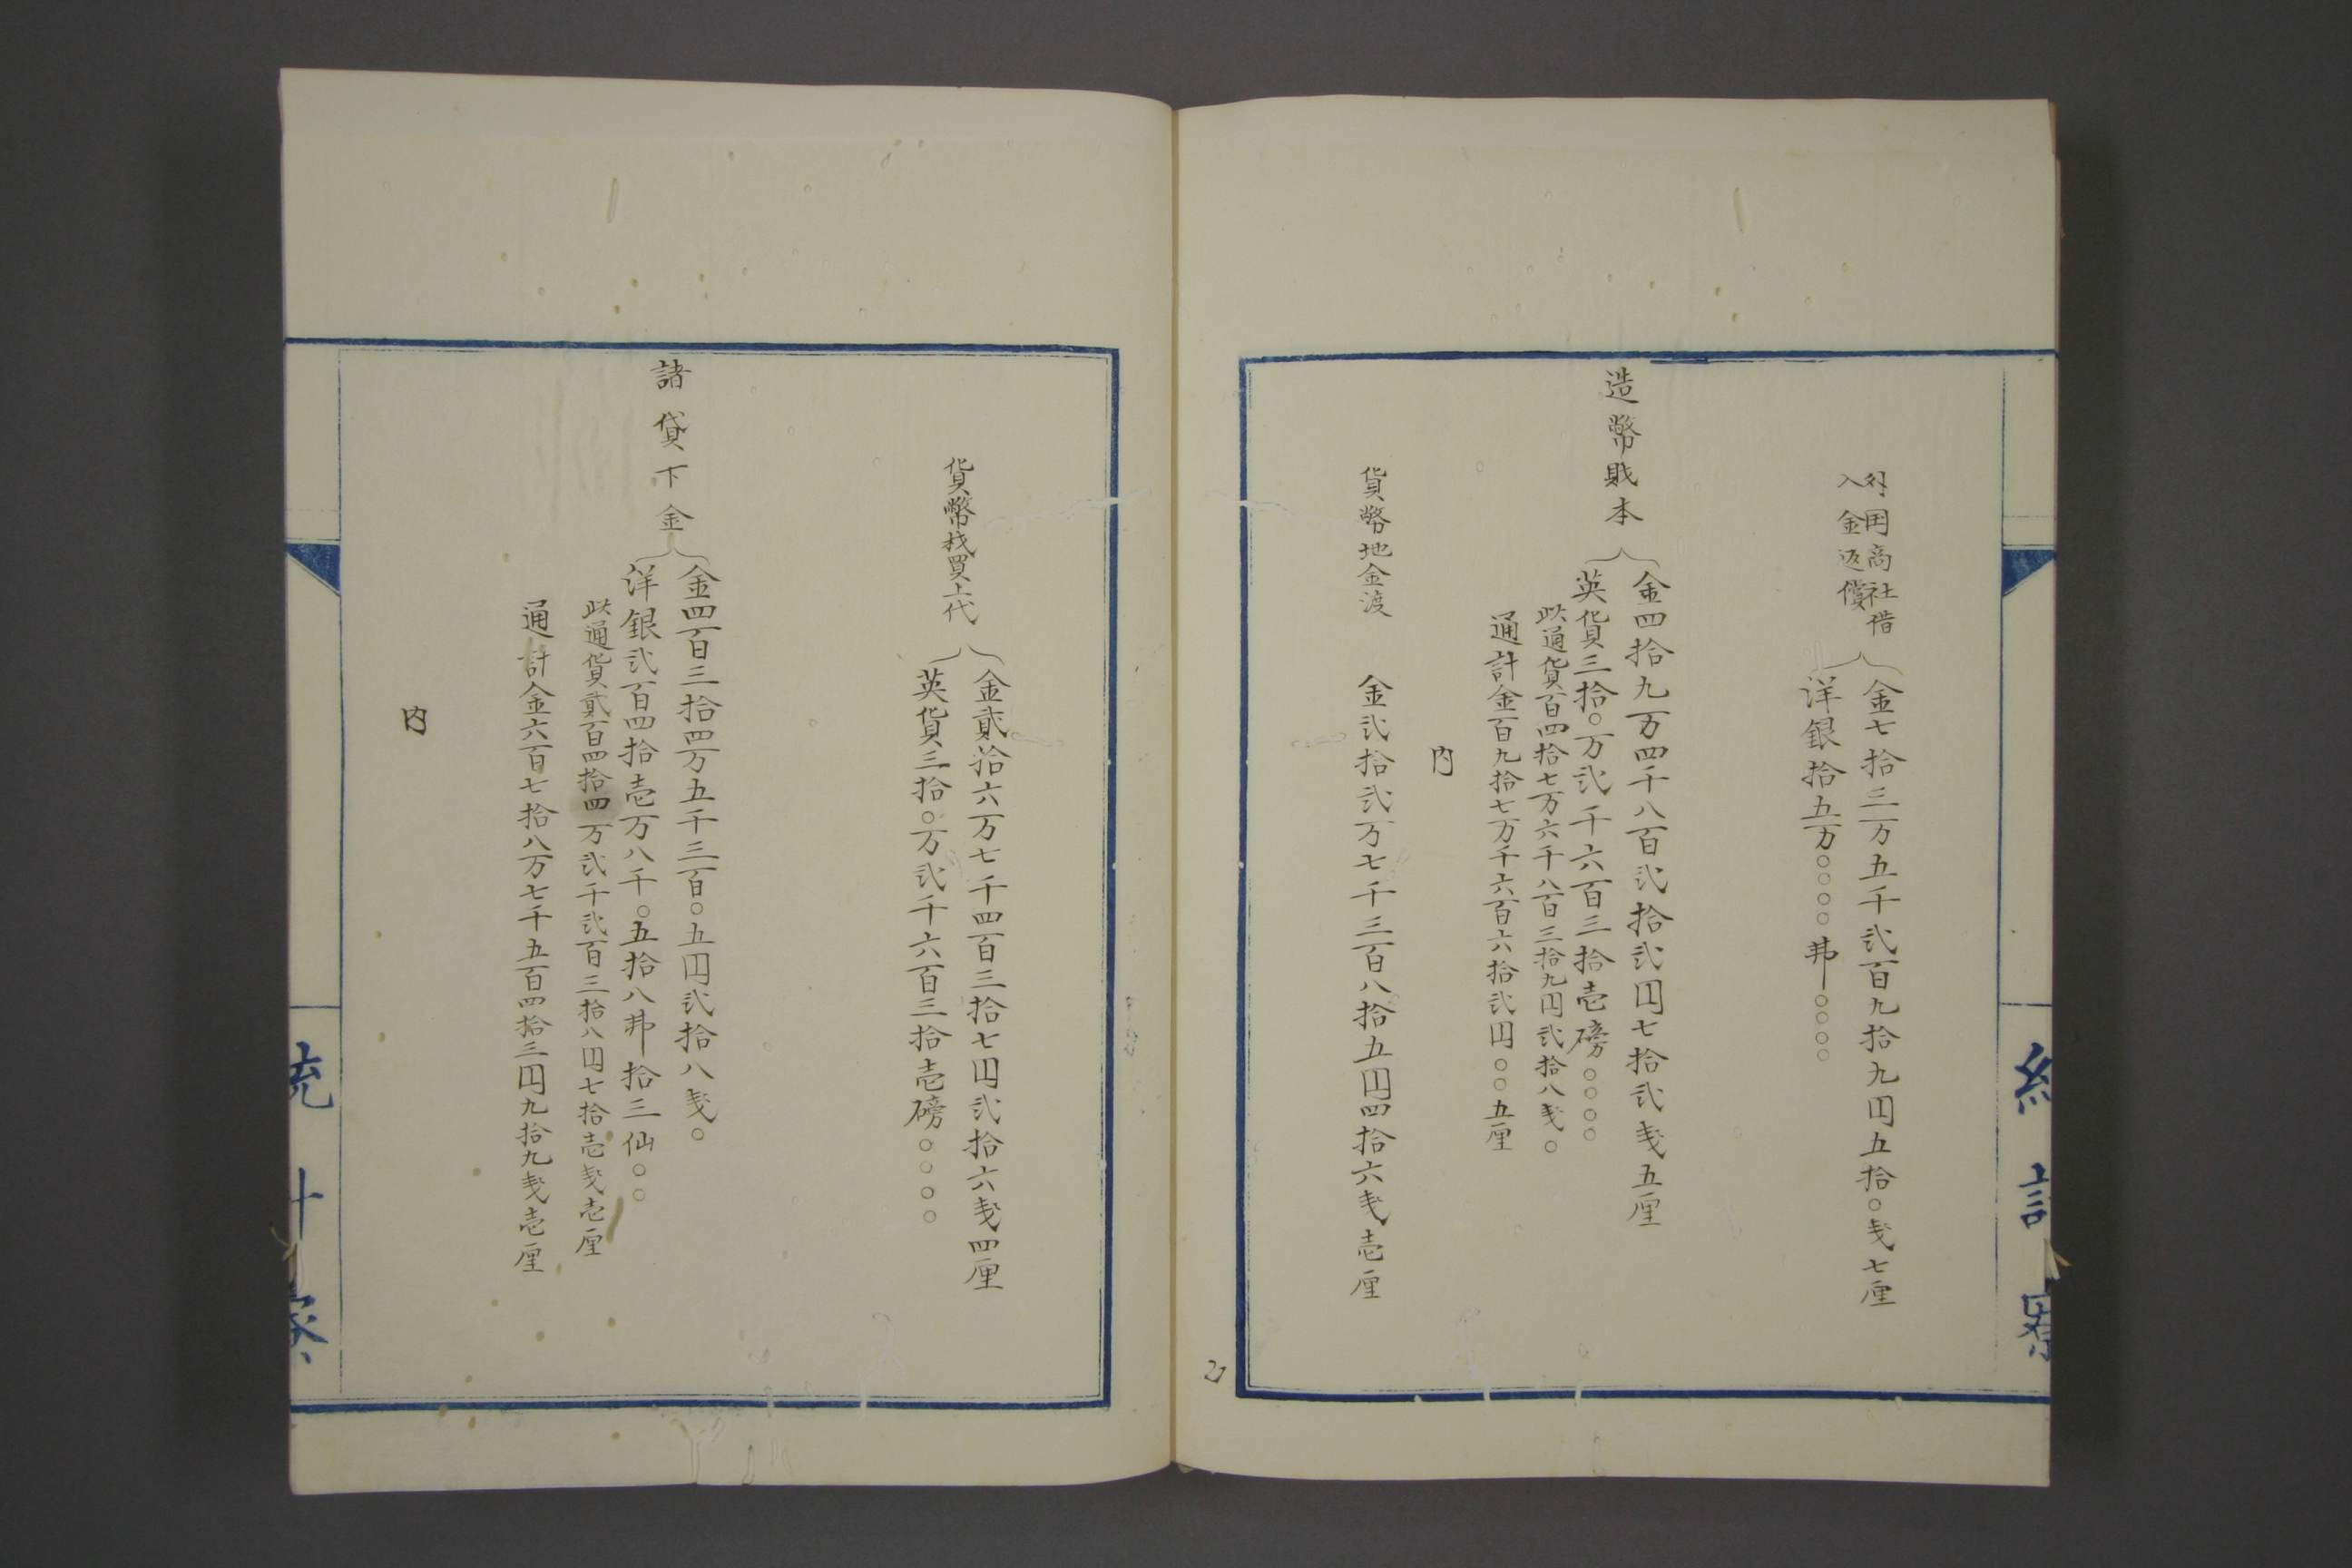 外国商社借
入金返償
金七拾三万五千弐百九拾九円五拾〇戔七厘
洋銀拾五万〇〇〇〇弗〇〇〇〇
造幣賎本
金四拾九万四千八百弐拾弐円七拾弐戔五厘
英貨三拾〇万弐千六百三拾壱磅〇〇〇〇
此通貨百四拾七万六千八百三拾九円弐拾八戔〇
通計金百九拾七万千六百六拾弐円〇〇五厘
内
貨幣地金渡
金弐拾弐万七千三百八拾五円四拾六戔壱厘
21
貨幣機買上代
金貳拾六万七千四百三拾七円弐拾六戔四厘
英貨三拾〇万弐千六百三拾壱磅〇〇〇〇
諸貸下金
金四百三拾四万五千三百〇五円弐拾八戔〇
洋銀弐百四拾壱万八千〇五拾八弗拾三仙〇〇
此通貨貳百四拾四万弐千弐百三拾八円七拾壱戔壱厘
通計金六百七拾八万七千五百四拾三円九拾九戔壱厘
内
統計寮